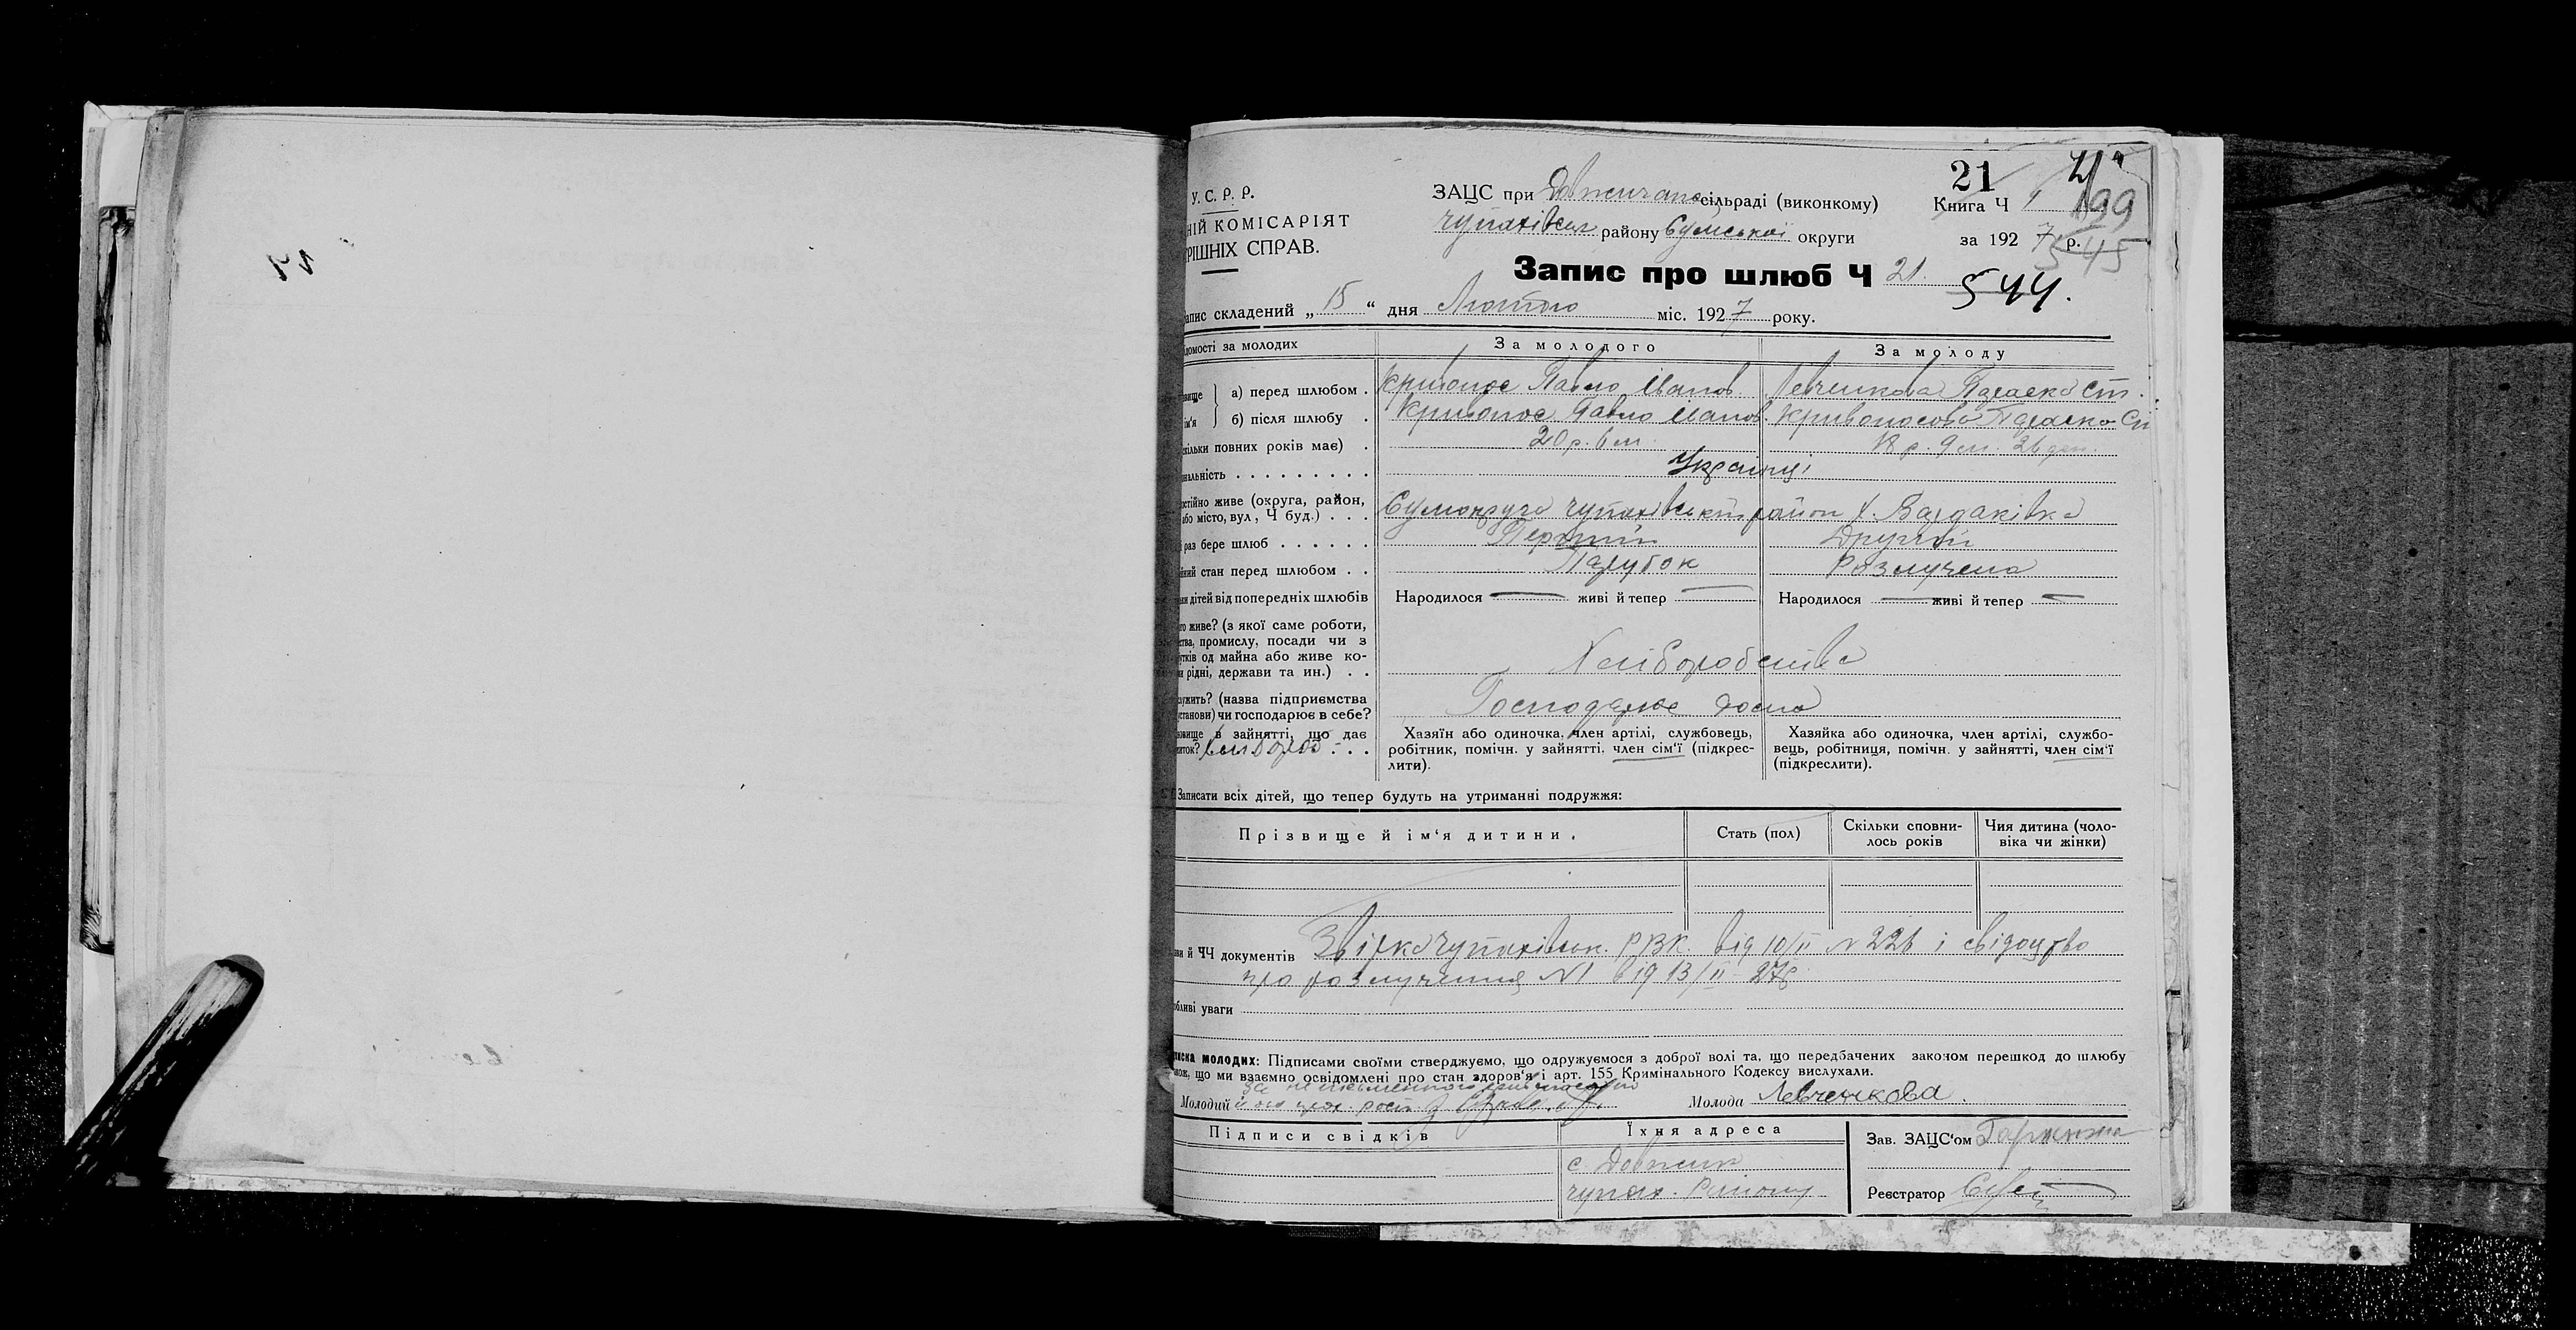 21
У.С.Р.Р.
НІЙ КОМІСАРІЯТ
РІШНІХ СПРАВ.
ЗАЦС при сільраді (виконкому)
району Сумської округи
Книга Ч 1 199
за 1927 р. 545
Запис про шлюб Ч 21. 544.
апис складений „15“ дня Лютого міс. 1927 року.
домості за молодих За молодого За молоду
вище а) перед шлюбом . Кривонос Павло Іванов Левченкова Параска Ст.
ім'я б) після шлюбу . Кривонос Павло Іванов. Кривоносова Параска Ст
кільки повних років має) . 20 р. 6 м. 18 р. 9 м. 26 дн.
нальність . . . . . . . . . Українці
остійно живе (округа, район,
або місто, вул, Ч буд.) . . . Сумокруга район х.
раз бере шлюб . . . . . . Перший Другий
йний стан перед шлюбом . . Парубок Розлучена
ки дітей від попередніх шлюбів Народилося — живі й тепер — Народилося — живі й тепер —
го живе? (з якої саме роботи,
ства, промислу, посади чи з
утків од майна або живе ко-
ри рідні, держави та ин.) . . Хліборобства
служить? (назва підприємства
установи) чи господарює в себе? Господарює дома
овище в зайнятті, що дає
иток? . . . Хазяїн або одиночка, член артілі, службовець,
робітник, помічн. у зайнятті, член сім'ї (підкрес-
лити).
Хазяйка або одиночка, член артілі, службо-
вець, робітниця, помічн. у зайнятті, член сім'ї
(підкреслити).
Записати всіх дітей, що тепер будуть на утриманні подружжя:
Прізвище й ім'я дитини. Стать (пол) Скільки сповни-
лось років Чия дитина (чоло-
віка чи жінки)
ви й ЧЧ документів РВК. від 10/II № 226 і свідоцтво
про розлучення №1 від 13/II-27р
обливі уваги
писка молодих: Підписами своїми стверджуємо, що одружуємося з доброї волі та, що передбачених законом перешкод до шлюбу
кож, що ми взаємно освідомлені про стан здоров'я і арт. 155 Кримінального Кодексу вислухали.
Молодий Молода Левченкова.
Підписи свідків Їхня адреса Зав. ЗАЦС'ом
с. Довжик
чупах. Району Реєстратор